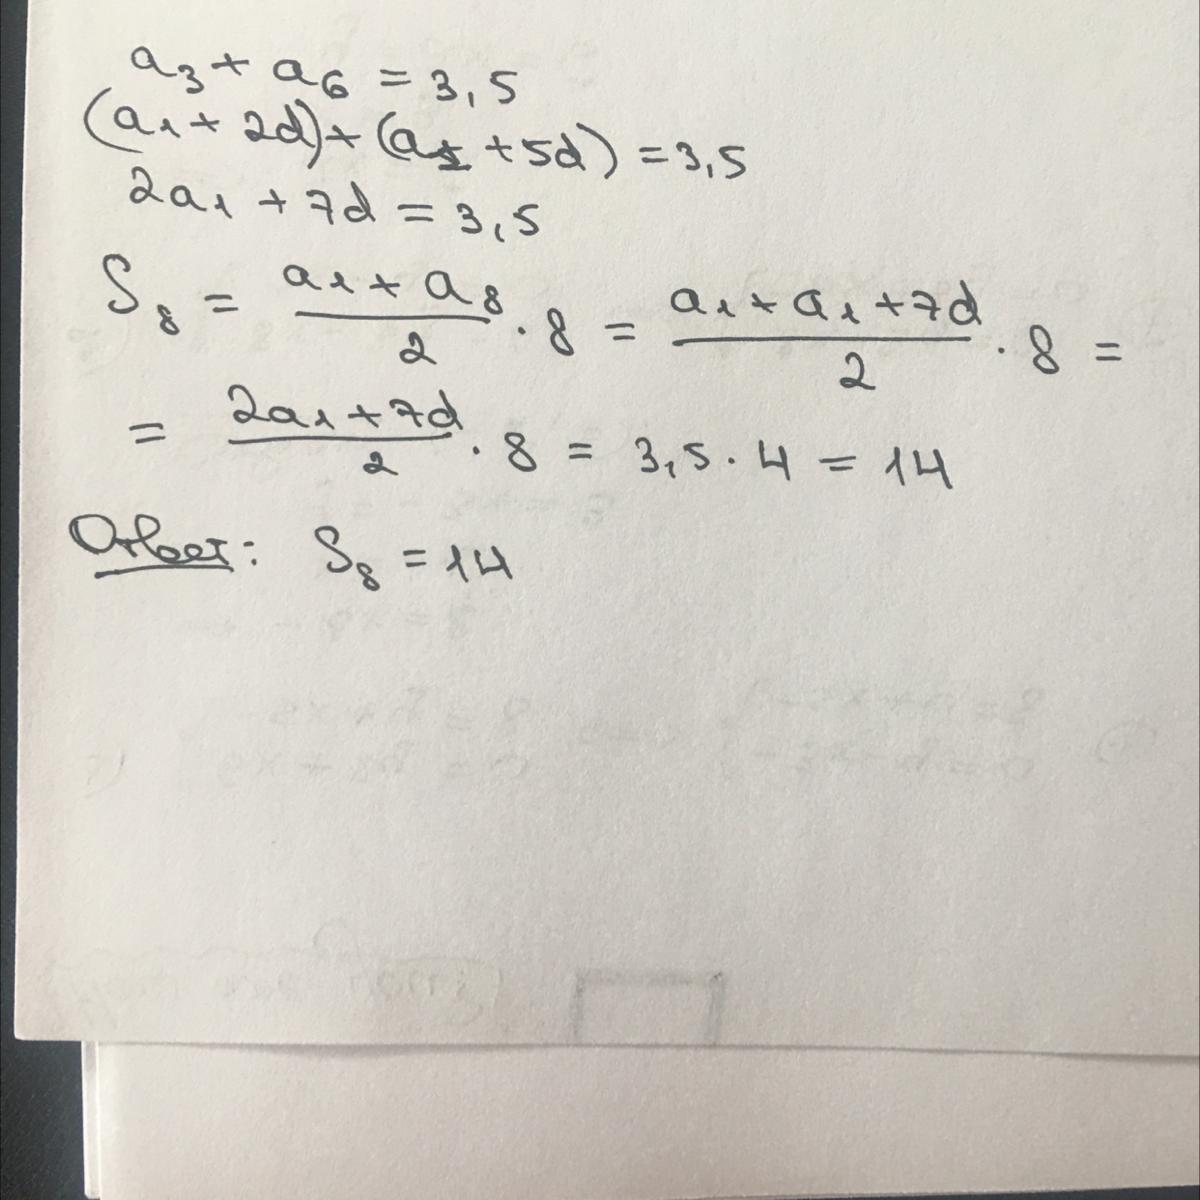 a3 + a6 = 3,5
(a1 + 2d) + (a1 + 5d) = 3,5
2a1 + 7d = 3,5
S8 = (a1 + a8)/2 · 8 = (a1 + a1 + 7d)/2 · 8 =
= (2a1 + 7d)/2 · 8 = 3,5 · 4 = 14
Ответ: S8 = 14